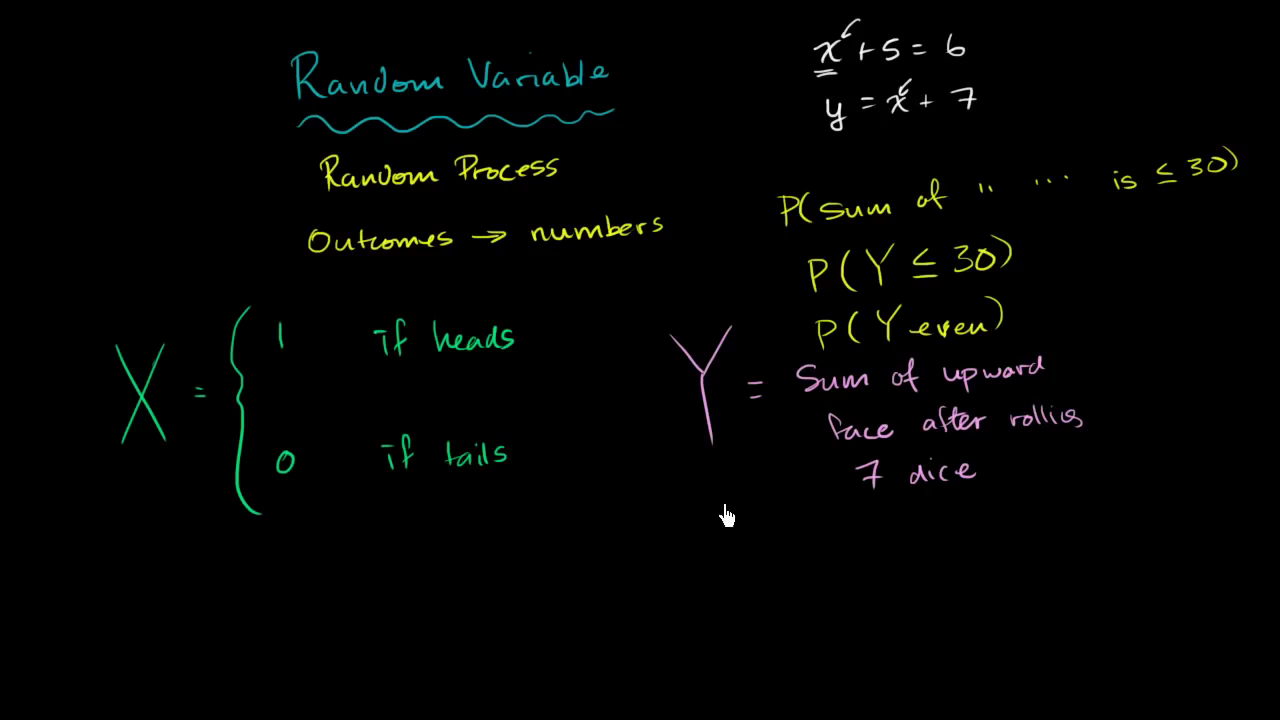 Random Variable
Random Process
Outcomes → numbers
X = { 1 if heads
0 if tails
x + 5 = 6
y = x + 7
P(Sum of " ... is ≤ 30)
P(Y ≤ 30)
P(Y even)
Y = Sum of upward
face after rolling
7 dice